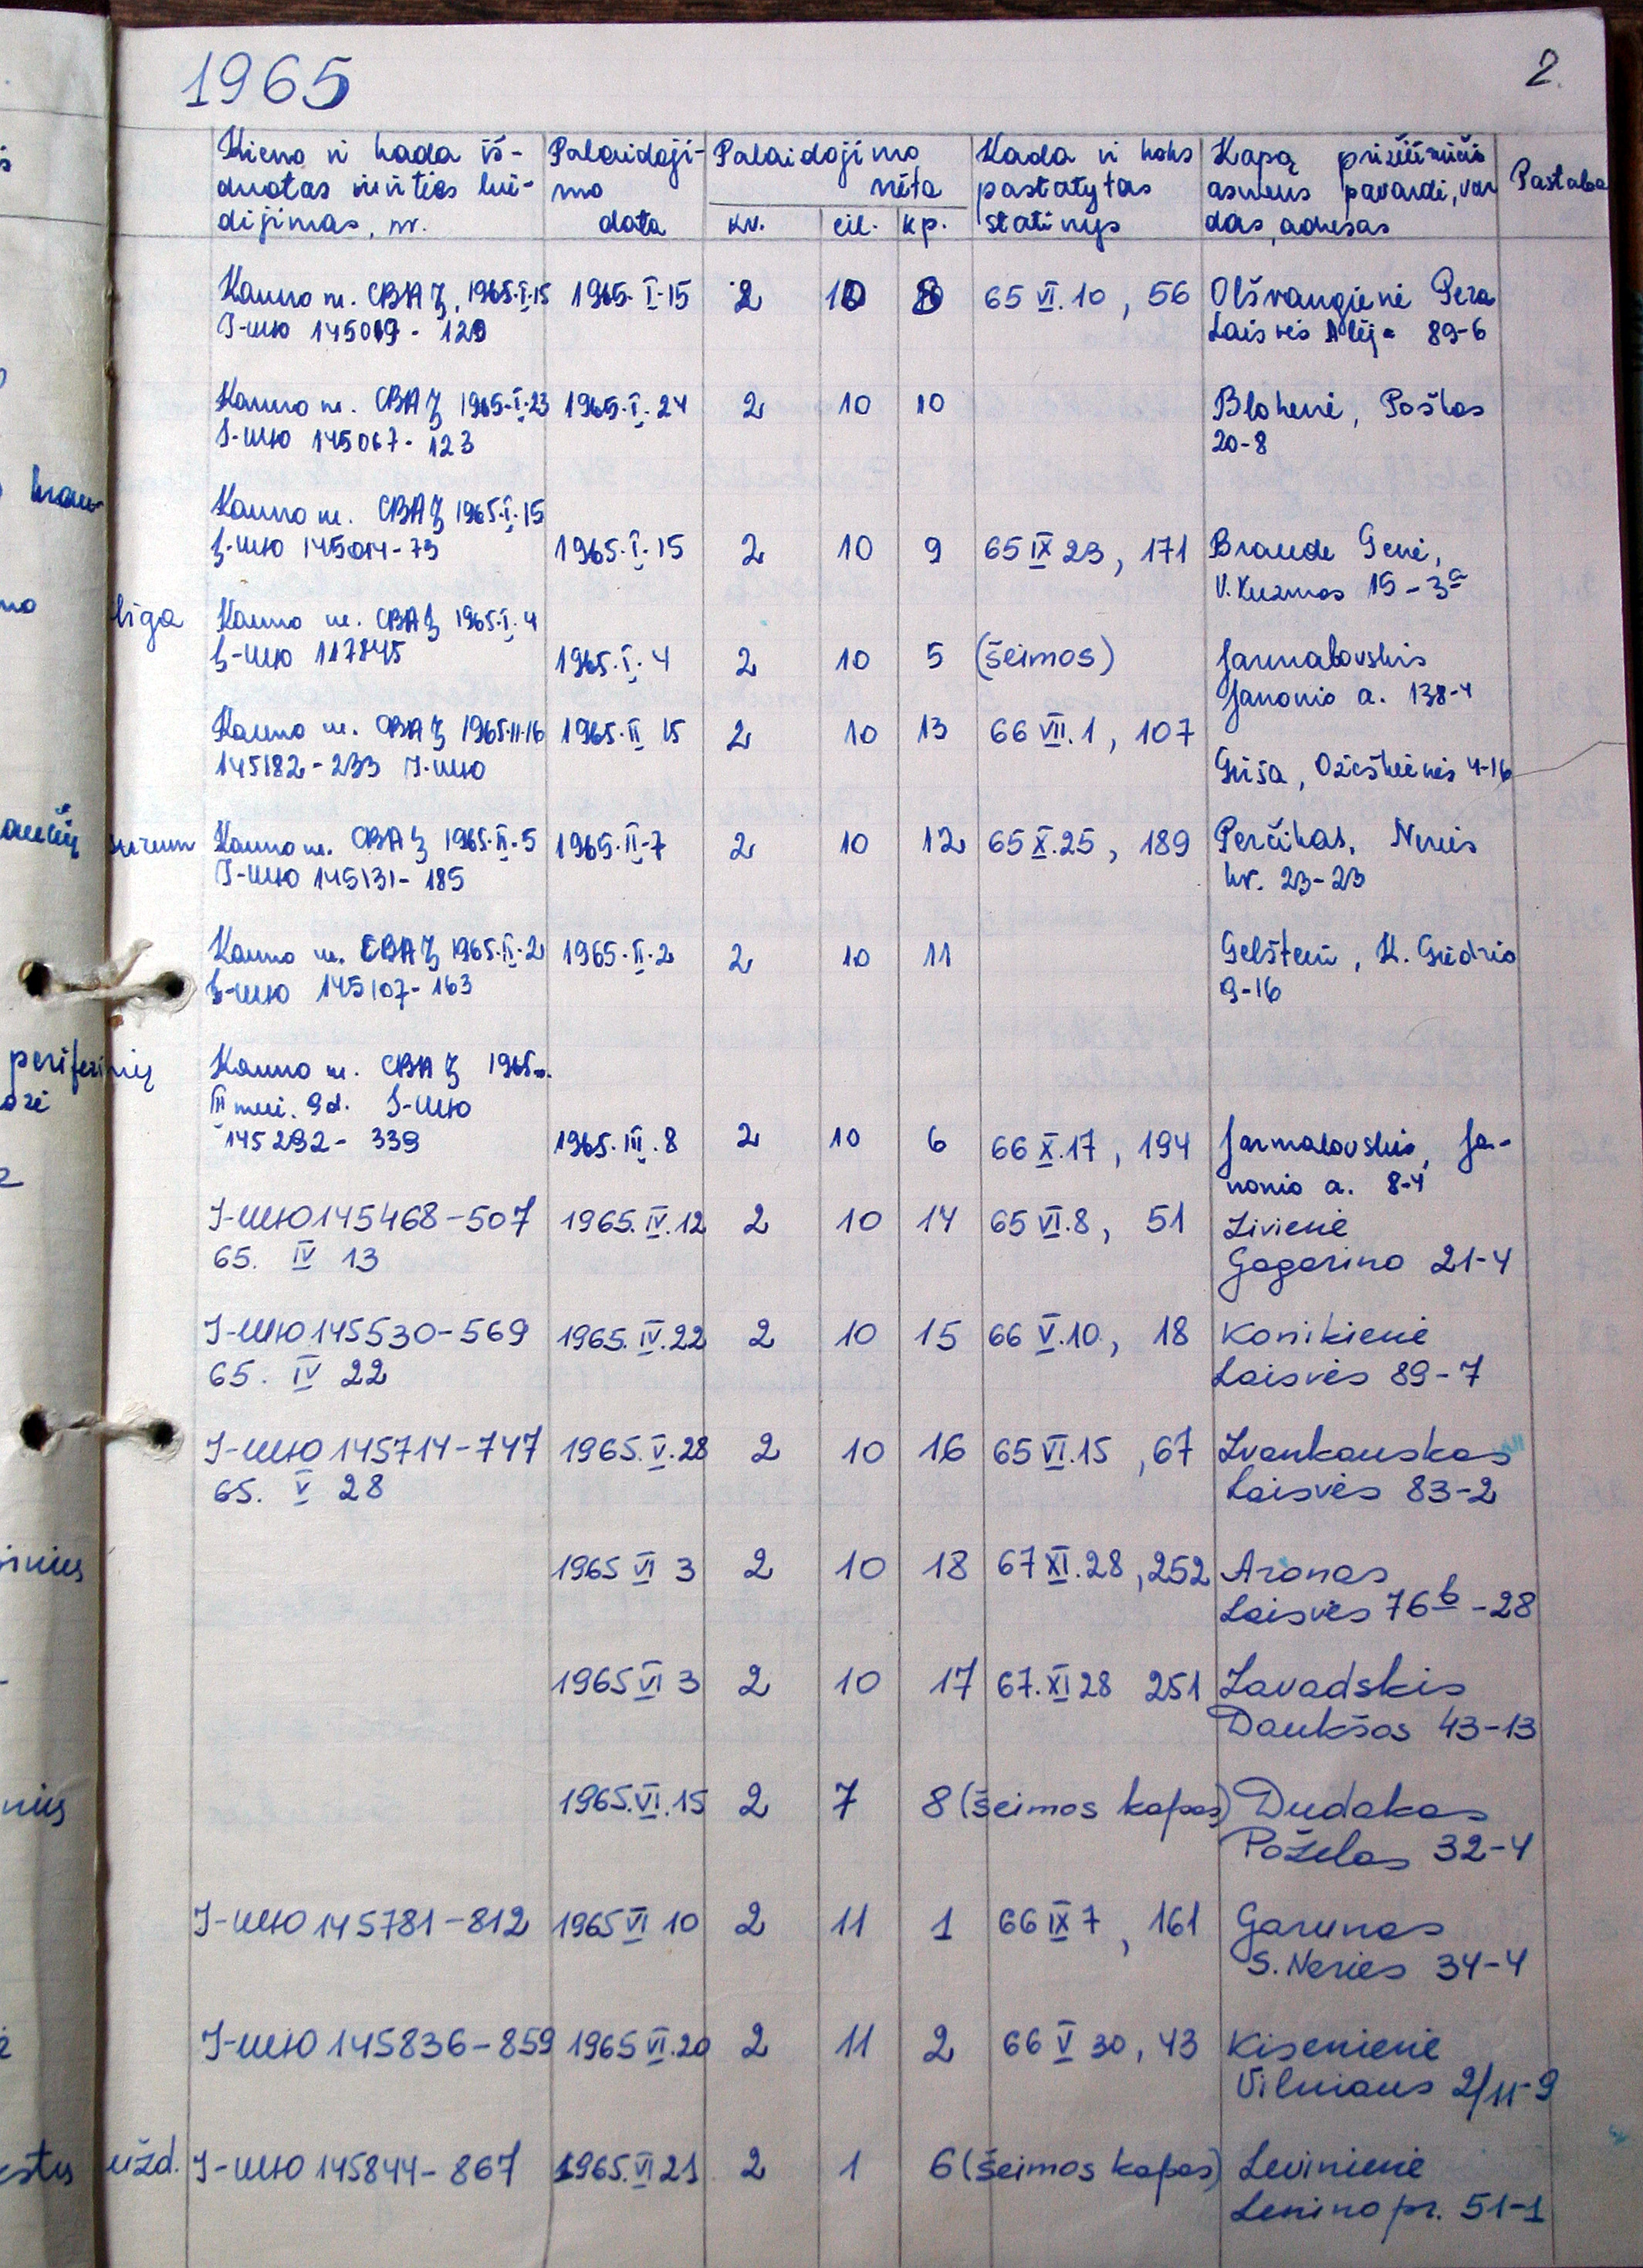 1965
2.
Kieno ir kada iš-
duotas mirties liu-
dijimas, nr.
Palaidoji-
mo
data
Palaidojimo
vieta
kv. eil. kp.
Kada ir koks
pastatytas
statinys
Kapą prižiūrinčio
asmens pavardė, var
das, adresas
Pastaba
Kauno m. CBAZ, 1965.I.15 1965.I.15 2 10 8 65 VI.10, 56 Olšvangienė Pera
I-ШЮ 145019-120 Laisvės Alėja 89-6
Kauno m. CBAZ 1965.I.23 1965.I.24 2 10 10 Blohenė, Poškos
I-ШЮ 145067-123 20-8
Kauno m. CBAZ 1965.I.15
I-ШЮ 145014-73 1965.I.15 2 10 9 65 IX 23, 171 Braude Genė,
V. Kuzmos 15-3a
liga Kauno m. CBAZ 1965.I.4
I-ШЮ 117845 1965.I.4 2 10 5 (šeimos) Jarmalovskis
Janonio a. 138-4
Kauno m. CBAZ 1965.II.16 1965.II 15 2 10 13 66 VII.1, 107
145182-233 I-ШЮ Griša, Ožeškienės 4-16
Kauno m. CBAZ 1965.II.5 1965.II.7 2 10 12 65 X.25, 189 Perčikas, Neries
I-ШЮ 145131-185 kr. 23-23
Kauno m. CBAZ 1965.II.2 1965.II.2 2 10 11 Gelštein, K. Giedrio
I-ШЮ 145107-163 9-16
periferinių Kauno m. CBAZ 1965 m.
III mėn. 9d. I-ШЮ
145292-339 1965.III.8 2 10 6 66 X.17, 194 Jarmalovskis, Ja-
nonio a. 8-4
I-ШЮ 145468-507 1965.IV.12 2 10 14 65 VI.8, 51 Livienė
65. IV 13 Gagarino 21-4
I-ШЮ 145530-569 1965.IV.22 2 10 15 66 V.10, 18 Konikienė
65. IV 22 Laisvės 89-7
I-ШЮ 145714-747 1965.V.28 2 10 16 65 VI.15, 67 Ivankauskas
65. V 28 Laisvės 83-2
1965 VI 3 2 10 18 67 XI.28, 252 Aronas
Laisvės 76b-28
1965 VI 3 2 10 17 67.XI 28 251 Zavadskis
Daukšos 43-13
1965.VI.15 2 7 8 (šeimos kapas) Dudakas
Poželos 32-4
I-ШЮ 145781-812 1965 VI 10 2 11 1 66 IX 7, 161 Garunas
S. Neries 34-4
I-ШЮ 145836-859 1965 VI.20 2 11 2 66 V 30, 43 Kisenienė
Vilniaus 2/11-9
užd. I-ШЮ 145844-867 1965.VI 21 2 1 6 (šeimos kapas) Levinienė
Lenino pr. 51-1